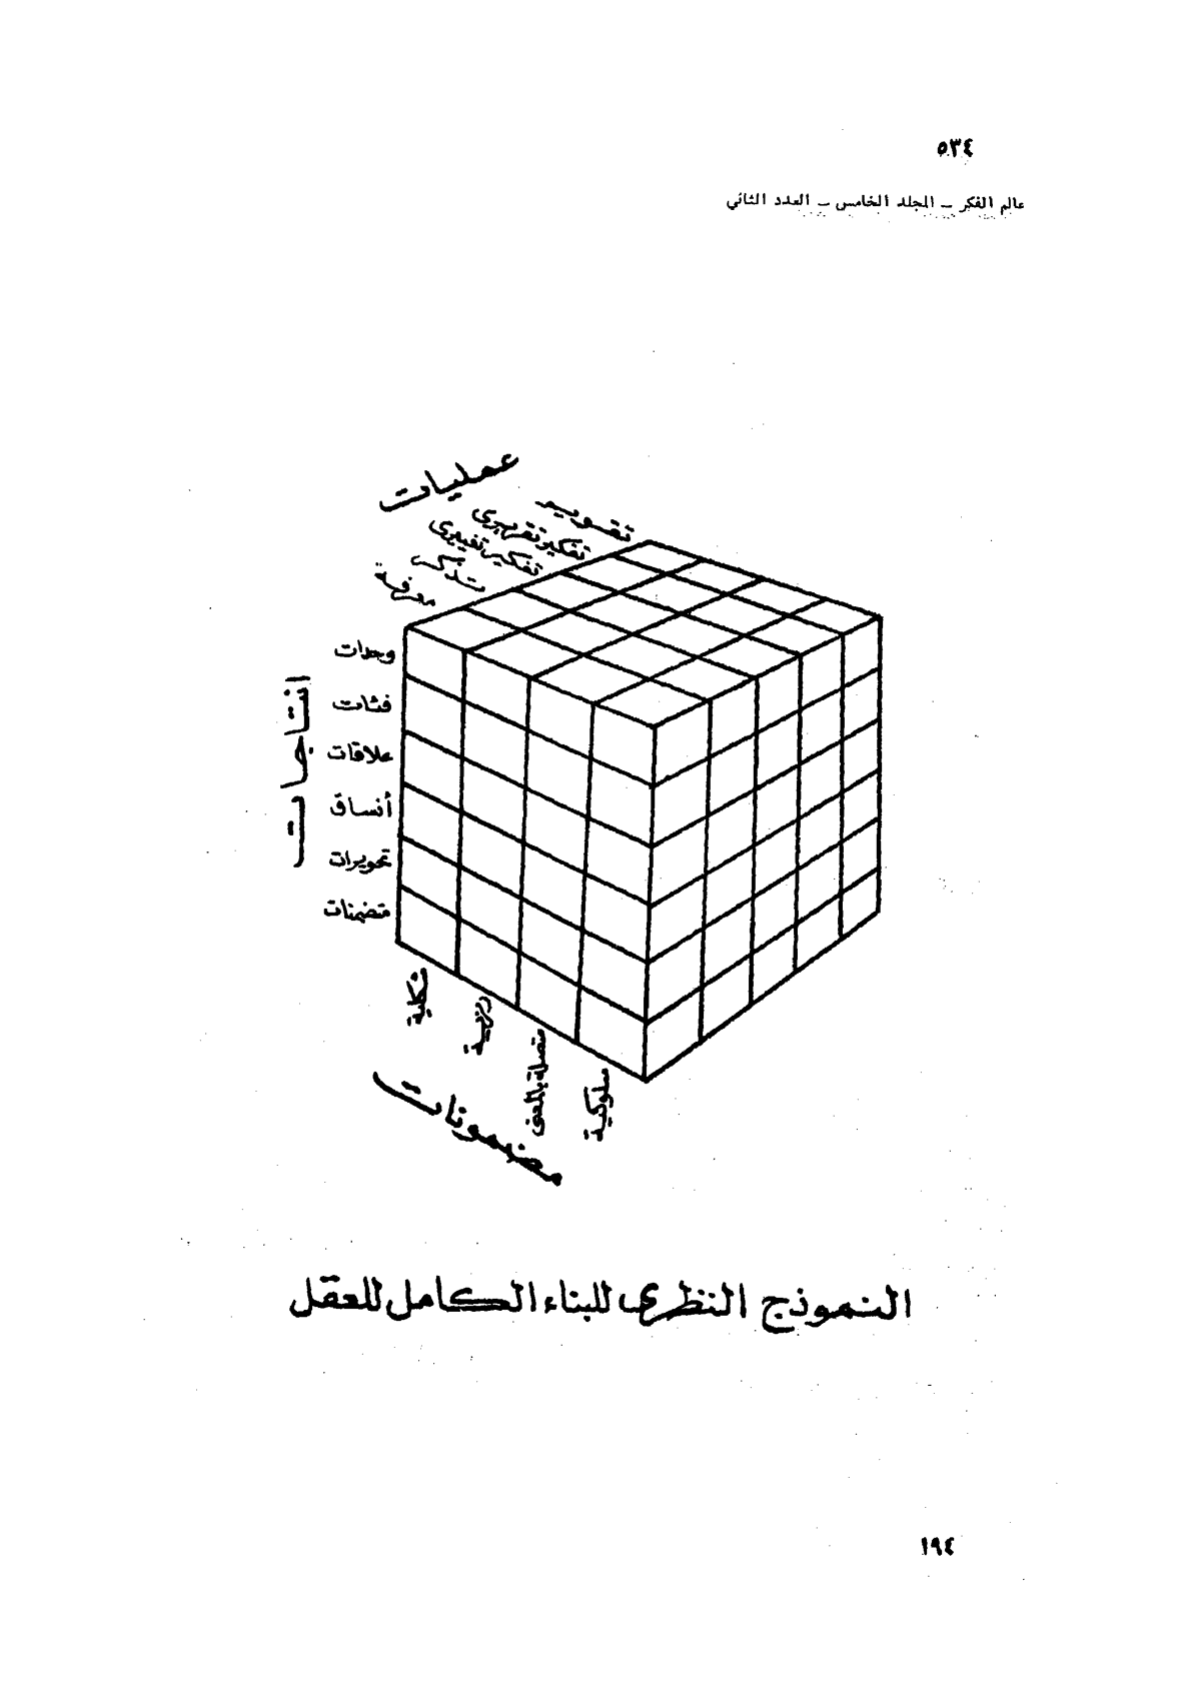 ٥٣٤
عالم الفكر – المجلد الخامس – العدد الثاني
عمليات
تقويم
تفكير تقريرى
تفكير تغييرى
تذكر
معرفة
انتاجات
وحدات
فئات
علاقات
أنساق
تحويرات
متضمنات
شكلية
رمزية
متصلة بالمعنى
سلوكية
مضمونات
النموذج النظرى للبناء الكامل للعقل
١٩٤